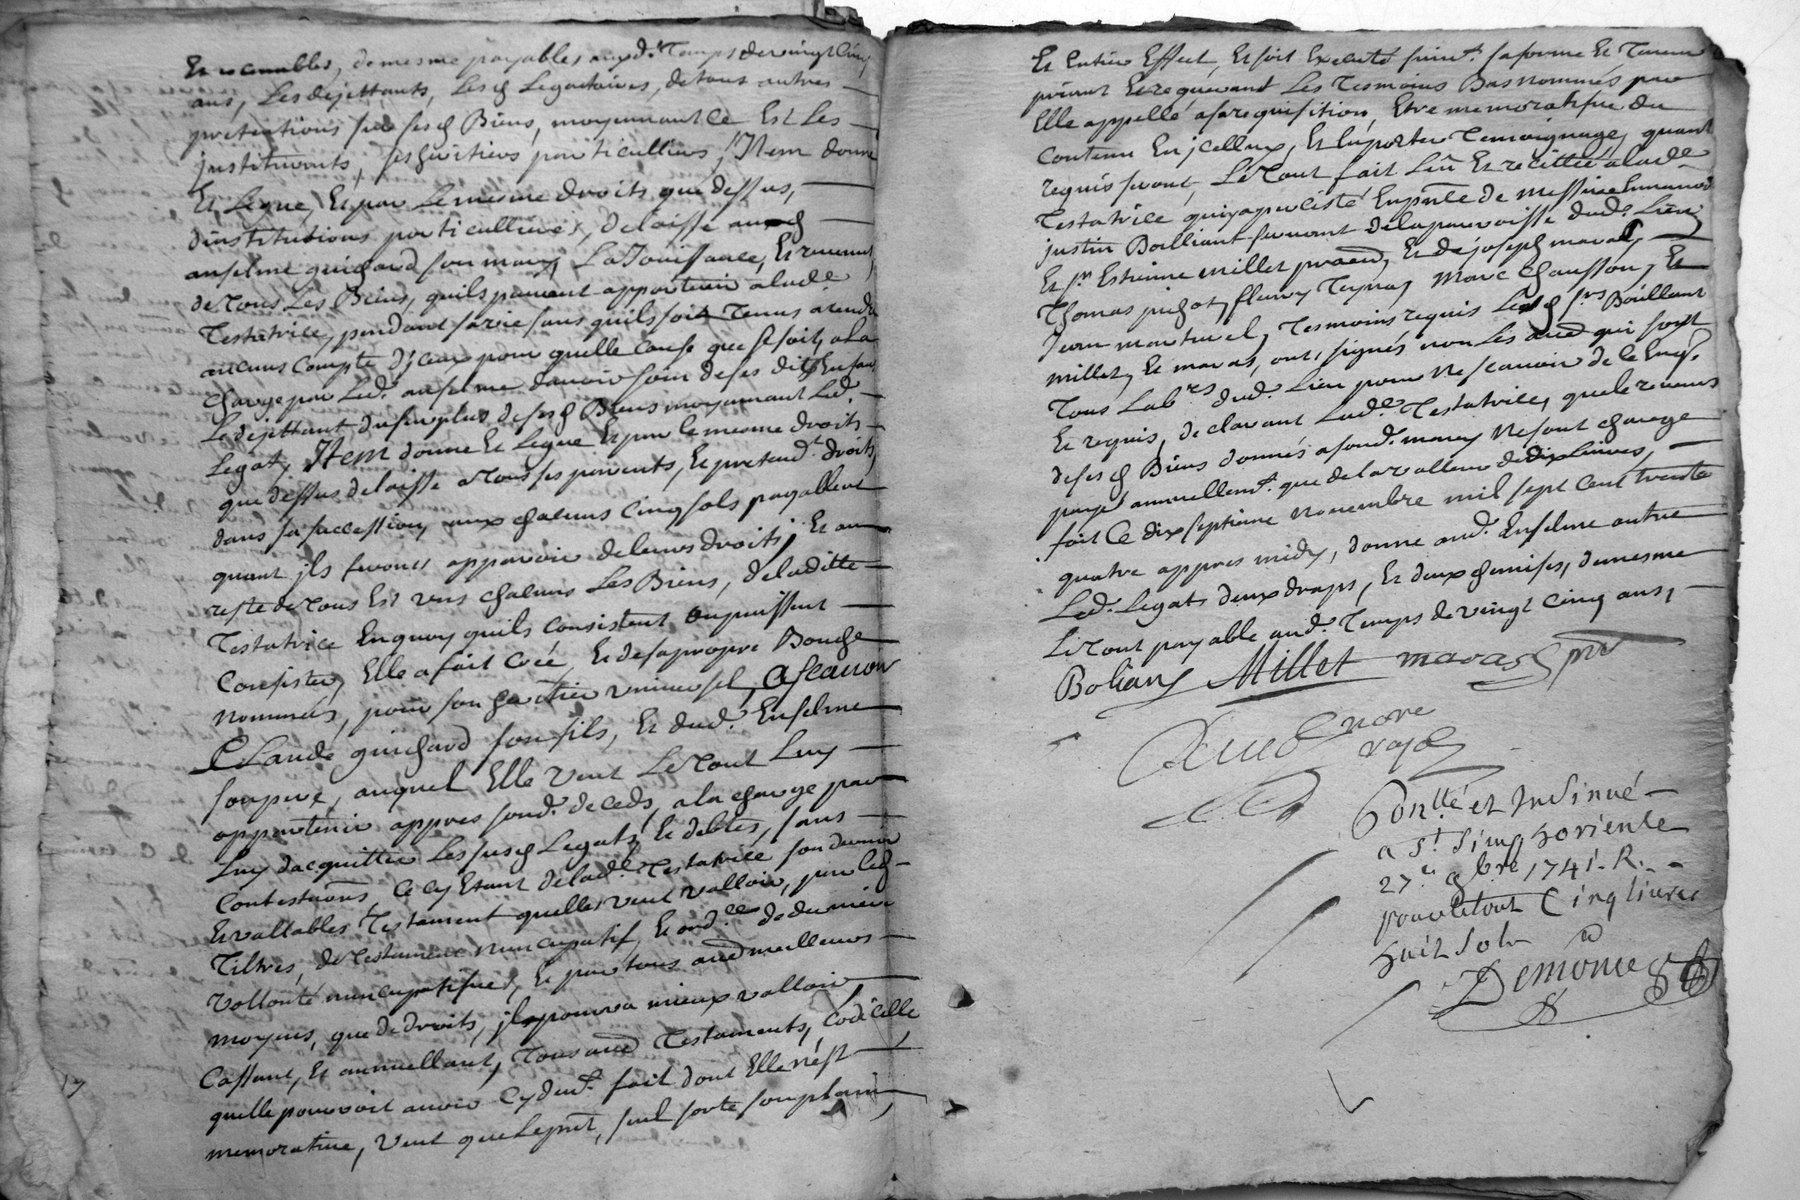 Et revenables, de mesme payables aud.t Temps de vingt cinq
ans, Les dejettants, Lesd Legataires, de tous autres
pretentions sur sesd Biens, moyennant ce Est Les
justituants, ses heritiers particulliers, Item donne
Et Legue, Et par Le mesme droits que dessus,
d'institutions particullieres, delaisse aud
anselme guichard son mary, La Jouissance, Et revenus,
de Tous Les Biens, quils peuvent appartenir a lad.e
Testatrice, pendant sa vie sans quils soit Tenus a rendre
aucuns Compte d'jceux pour quelle cause que se soit, a la
charge par Led. anselme davoir soin de ses dits Enfans
Le dejettant du surplus de sesd Biens moyennant Led.
Legat, Item donne Et Legue Et par le mesme droits
que dessus delaisse a Tous ses parents, Et pretend.t droits,
dans sa succession, aux chacuns Cinq sols payables
quant jls feronts apparoir de leurs droits, Et au
reste de Tous Est uns chacuns Les Biens, de laditte
Testatrice En quoy quils consistent ou puissent
Consister, Elle a fait Créé, Et de sa propre Bouche
nommés, pour son heritier universel, a scauoir
Claude guichard son fils, Et dud. Enselme
son pere, auquel Elle veut Le Tout Luy
appartenir appres sond. deceds, a la charge par
Luy dacquitter Les susd Legats, Et debtes, sans
Contestations, Ce cy Estant de lad.e Testatrice son dernier
Et vallables Testament quelles veut valloir, par Led
Tiltres, de Testament nuncupatif, Et ord.ce de derniere
vollonté nuncupatifue, Et par tous aud meilleurs
moyens, que de droits, jls pourra mieux valloir,
Cassant, Et annuellant, Tous aud Testaments, Codicille
quelle pouvoit avoir Cy deu.t fait dont Elle n'est
memoratiue, Veut que Le pnt, seul sorte son plain,
17
Et Entier Effect, Et soit Executé suiu.t sa forme Et Teneur
priant Et requerant Les Tesmoins Bas nommés par
Elle appellé a sa requisition, Etre memoratifue du
Contenu En jcelluy, Et En porter Temoignage, quant
requis seront, Le Tout fait Leu Et recitté a lad.e
Testatrice qui y a percisté En pnte de messire
justin Balliant servant de la parroisse dud. Lieu,
Et Sr Estienne millet praticn, Et de joseph maras,
Thomas pichot, fleury Teynas, Marc Chausson, Et
Jean montuel, Tesmoins requis Lesd Srs Boillant
millet, Et maras, ont, signés non Les aud qui sont
Tous Lab.rs dud. Lieu pour ne scauoir de ce Enq.s
Et requis, declarant Lad.e Testatrice, que le revenus
de sesd Biens donnés a sond. mary ne sont charge
payé annuellem.t que de la valleur de dix Liures,
fait Ce dix septieme novembre mil sept cent trente
quatre appres midy, donne aud. Enselme outre
Led. Legats deux draps, Et deux chemises, de mesme
Le Tout payable aud. Temps de vingt cinq ans,
Boliant Millet maras pnt
nore
royal
Con.llé et Insinué
a St. Simphorien le
27.e 9bre 1741. R.
pour le tout Cinq livres
huit sols
Demonie